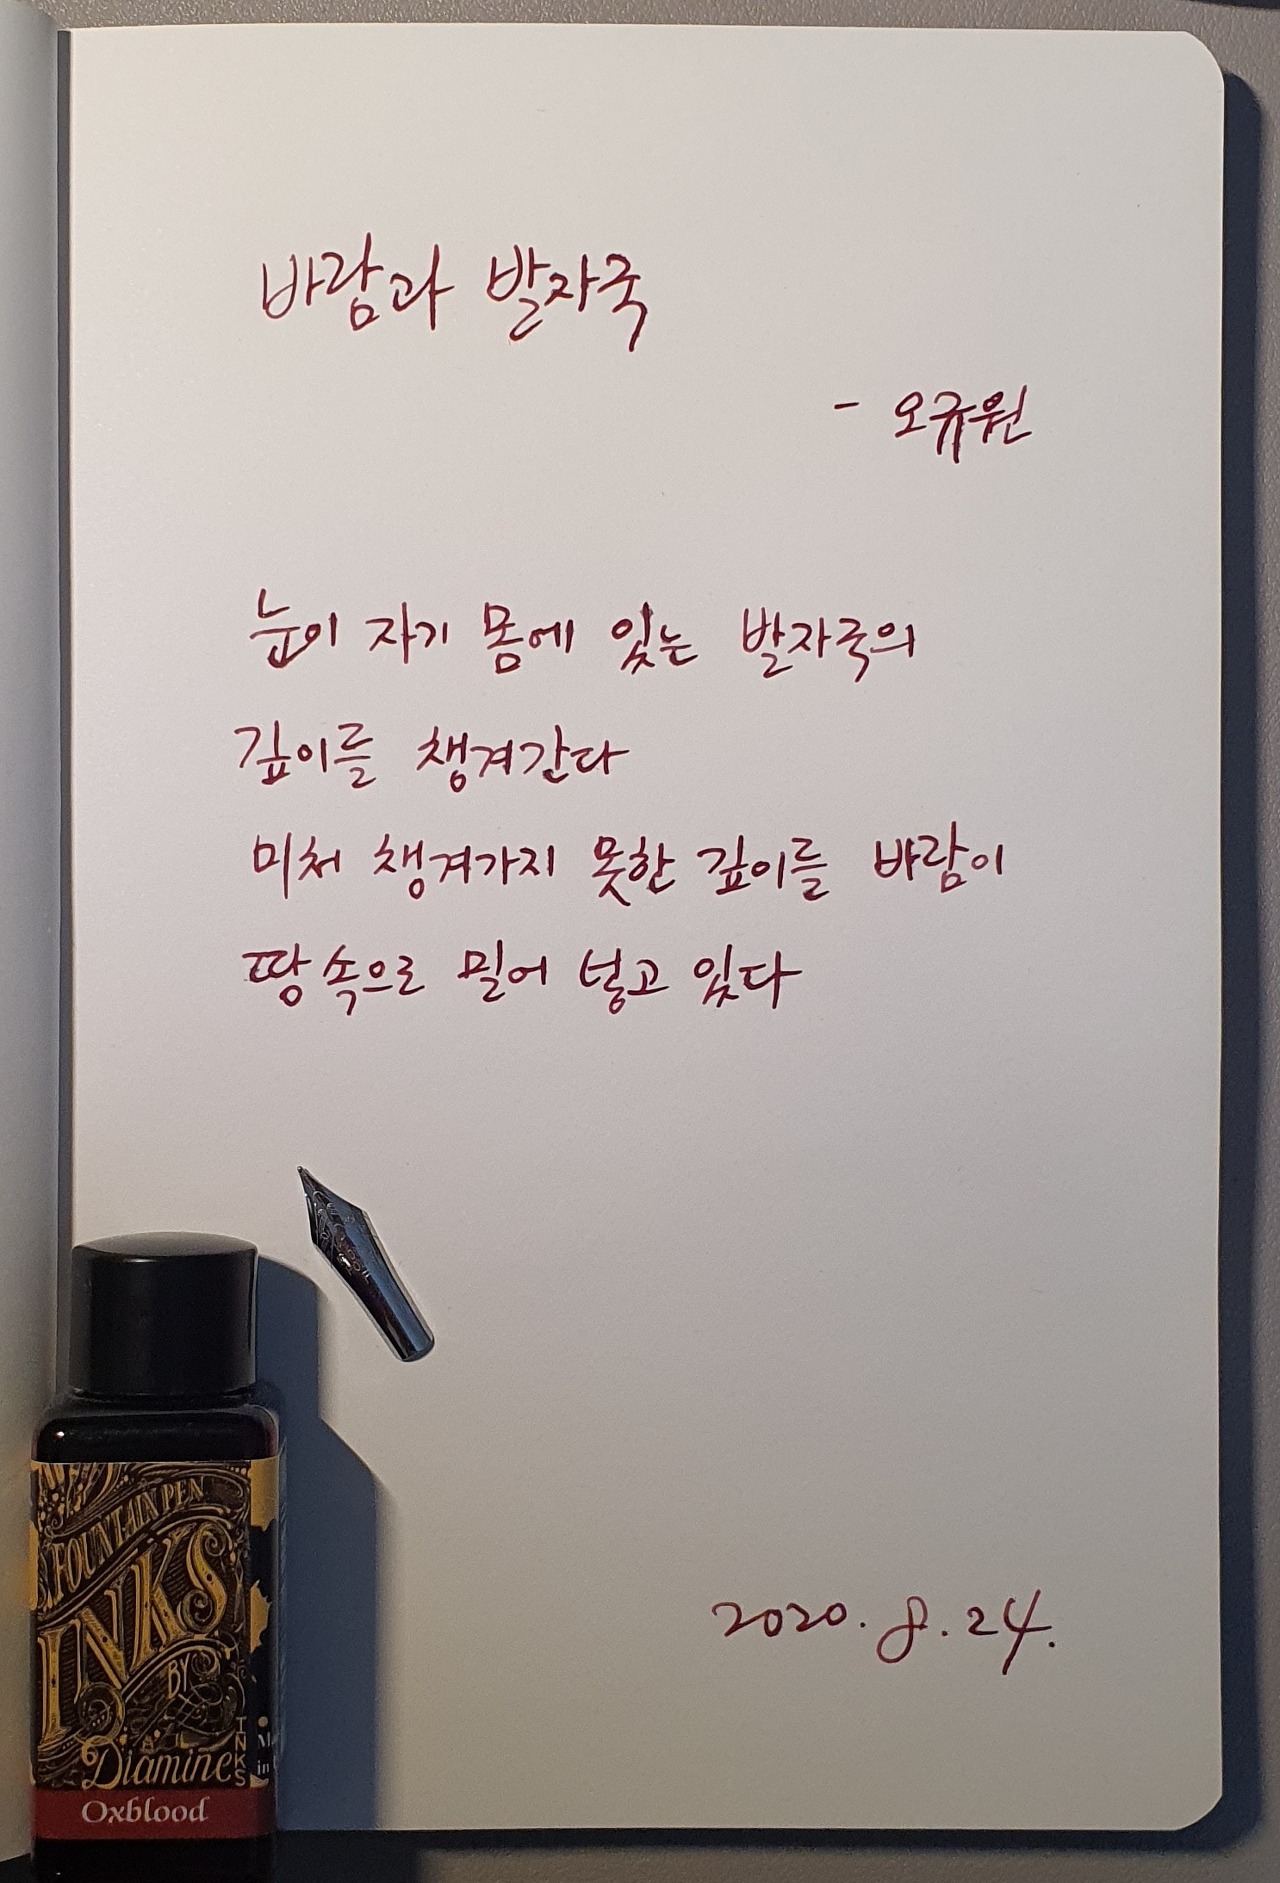 바람과 발자국
- 오규원
눈이 자기 몸에 있는 발자국의
깊이를 챙겨간다
미처 챙겨가지 못한 깊이를 바람이
땅 속으로 밀어 넣고 있다
2020. 8. 24.
FOUNTAIN PEN
INKS
BY
Diamine
INKS
Oxblood